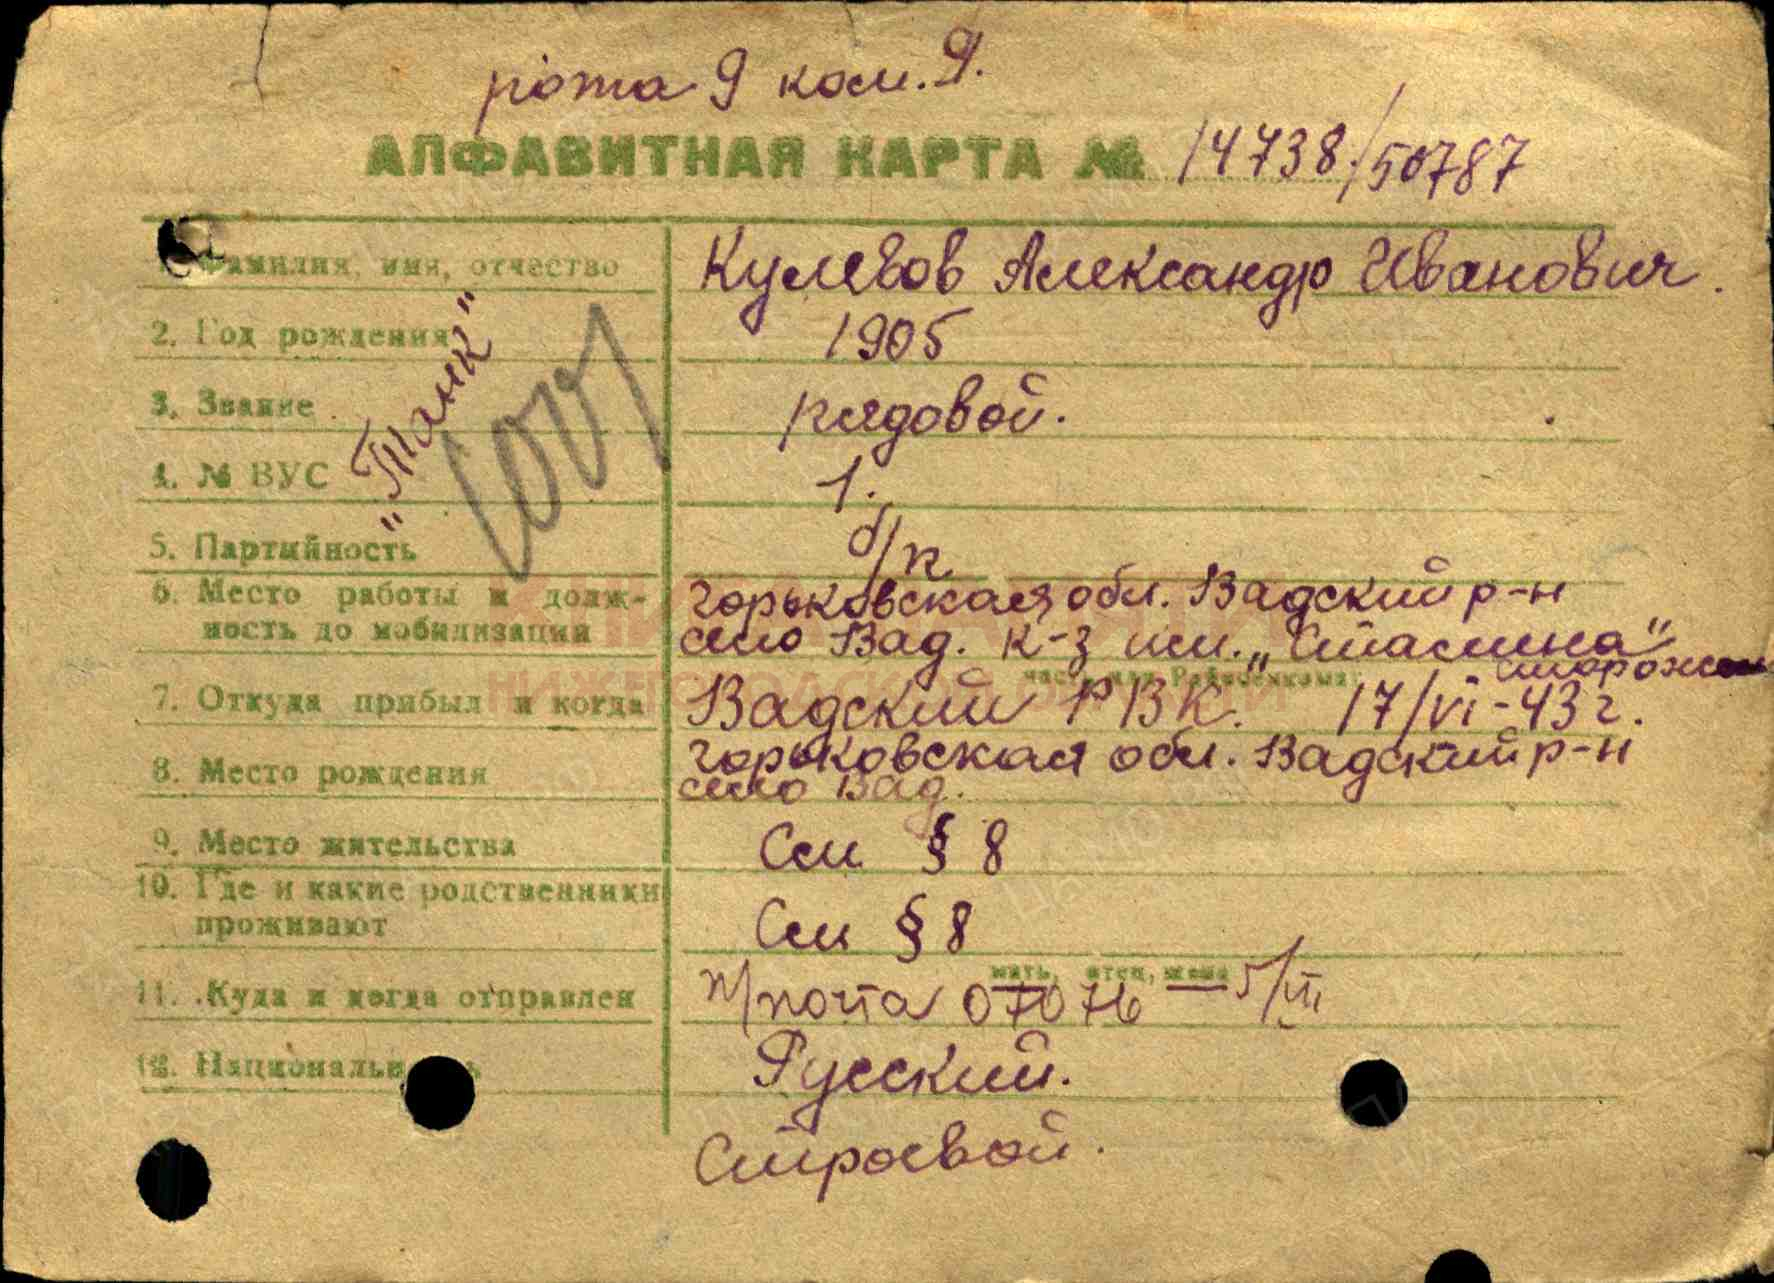 рота 9 ком. 9.
АЛФАВИТНАЯ КАРТА № 14738/50787
Фамилия, имя, отчество Кулевов Александр Иванович.
2. Год рождения 1905
3. Звание рядовой.
4. № ВУС 1.
„Танк"
5. Партийность б/п
6. Место работы и долж- Горьковская обл. Вадский р-н
ность до мобилизации село Вад. к-з им. „Сталина"
сторож
часть или Райвоенкомат
7. Откуда прибыл и когда Вадский РВК. 17/VI-43 г.
8. Место рождения Горьковская обл. Вадский р-н
село Вад.
9. Место жительства См § 8
10. Где и какие родственники
проживают См § 8
мать, отец, жена
11. Куда и когда отправлен п/почта 07076 — 5/VII
12. Национальн ь Русский.
Строевой.
КНИГА ПАМЯТИ
НИЖЕГОРОДСКОЙ ОБЛАСТИ